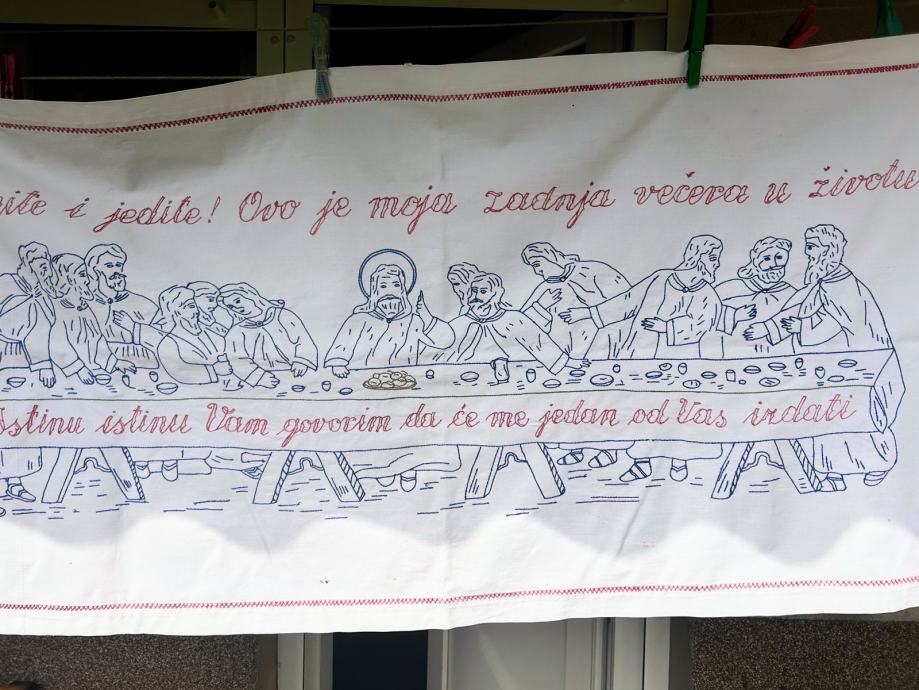 i jedite! Ovo je moja zadnja večera u životu
Istinu istinu Vam govorim da će me jedan od Vas izdati